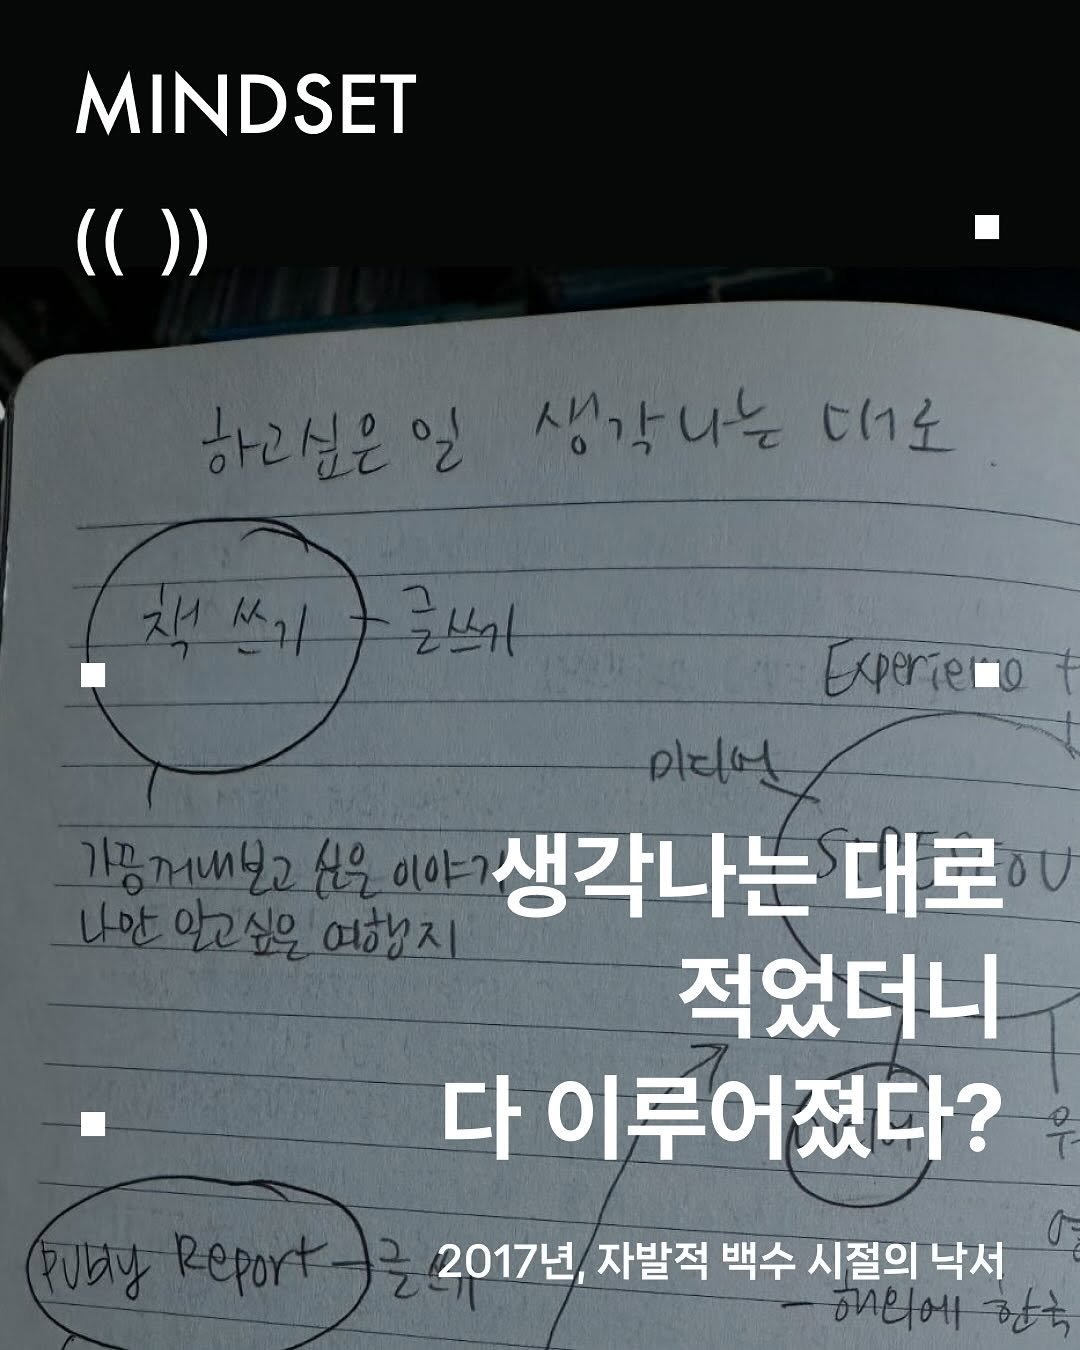 MINDSET
(( ))
하고싶은 일 생각나는 대로.
책 쓰기 - 글쓰기
미디어
가끔 꺼내보고 싶은 이야기
나만 알고싶은 여행지
생각나는 대로
적었더니
다 이루어졌다?
Publy Report - 글쓰기
2017년, 자발적 백수 시절의 낙서
- 해외에 한국